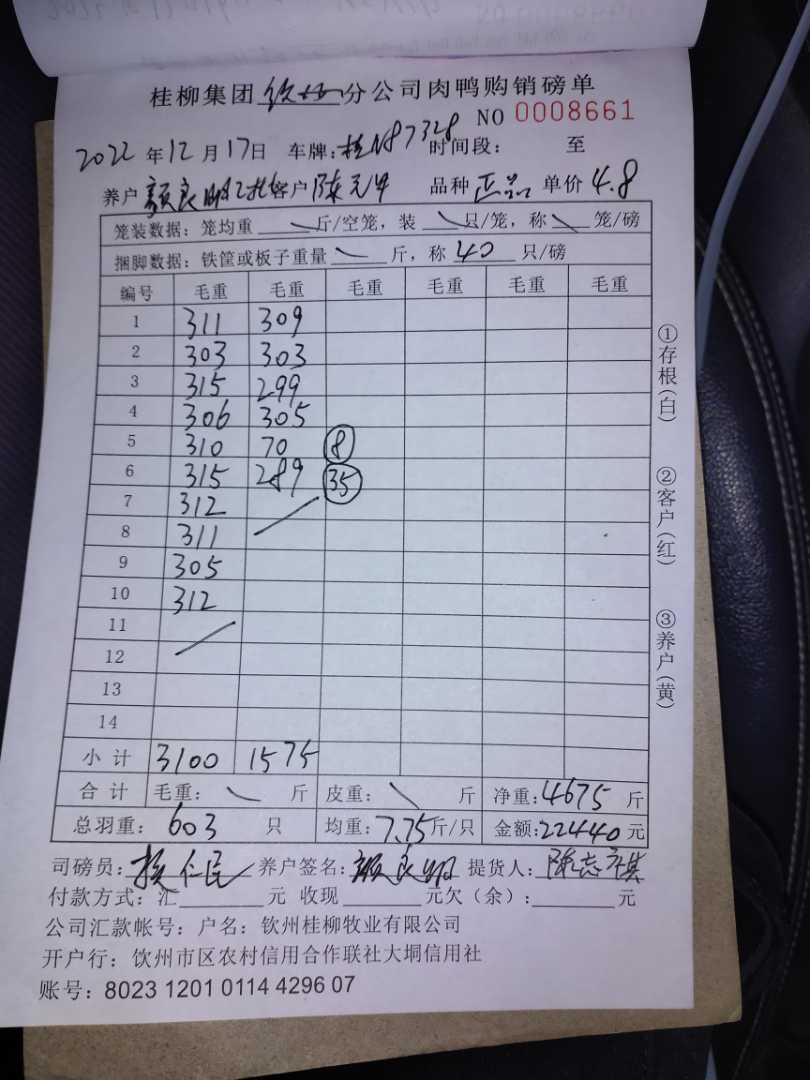 桂柳集团钦州分公司肉鸭购销磅单
NO 0008661
2022年12月17日 车牌:桂N87328 时间段: 至
养户 颜良明 客户 陈元 品种 正品 单价 4.8
笼装数据: 笼均重 斤/空笼, 装 只/笼, 称 笼/磅
捆脚数据: 铁筐或板子重量 斤, 称 40 只/磅
编号 毛重 毛重 毛重 毛重 毛重 毛重
1 311 309
2 303 303
3 315 299
4 306 305
5 310 70 8
6 315 289 35
7 312
8 311
9 305
10 312
11
12
13
14
小计 3100 1575
合计 毛重: 斤 皮重: 斤 净重:4675 斤
总羽重: 603 只 均重:7.75斤/只 金额:22440元
司磅员: 仁民 养户签名:颜良明 提货人:陈志
付款方式:汇 元 收现 元欠(余): 元
公司汇款帐号: 户名: 钦州桂柳牧业有限公司
开户行: 饮州市区农村信用合作联社大垌信用社
账号: 8023 1201 0114 4296 07
①存根(白)
②客户(红)
③养户(黄)